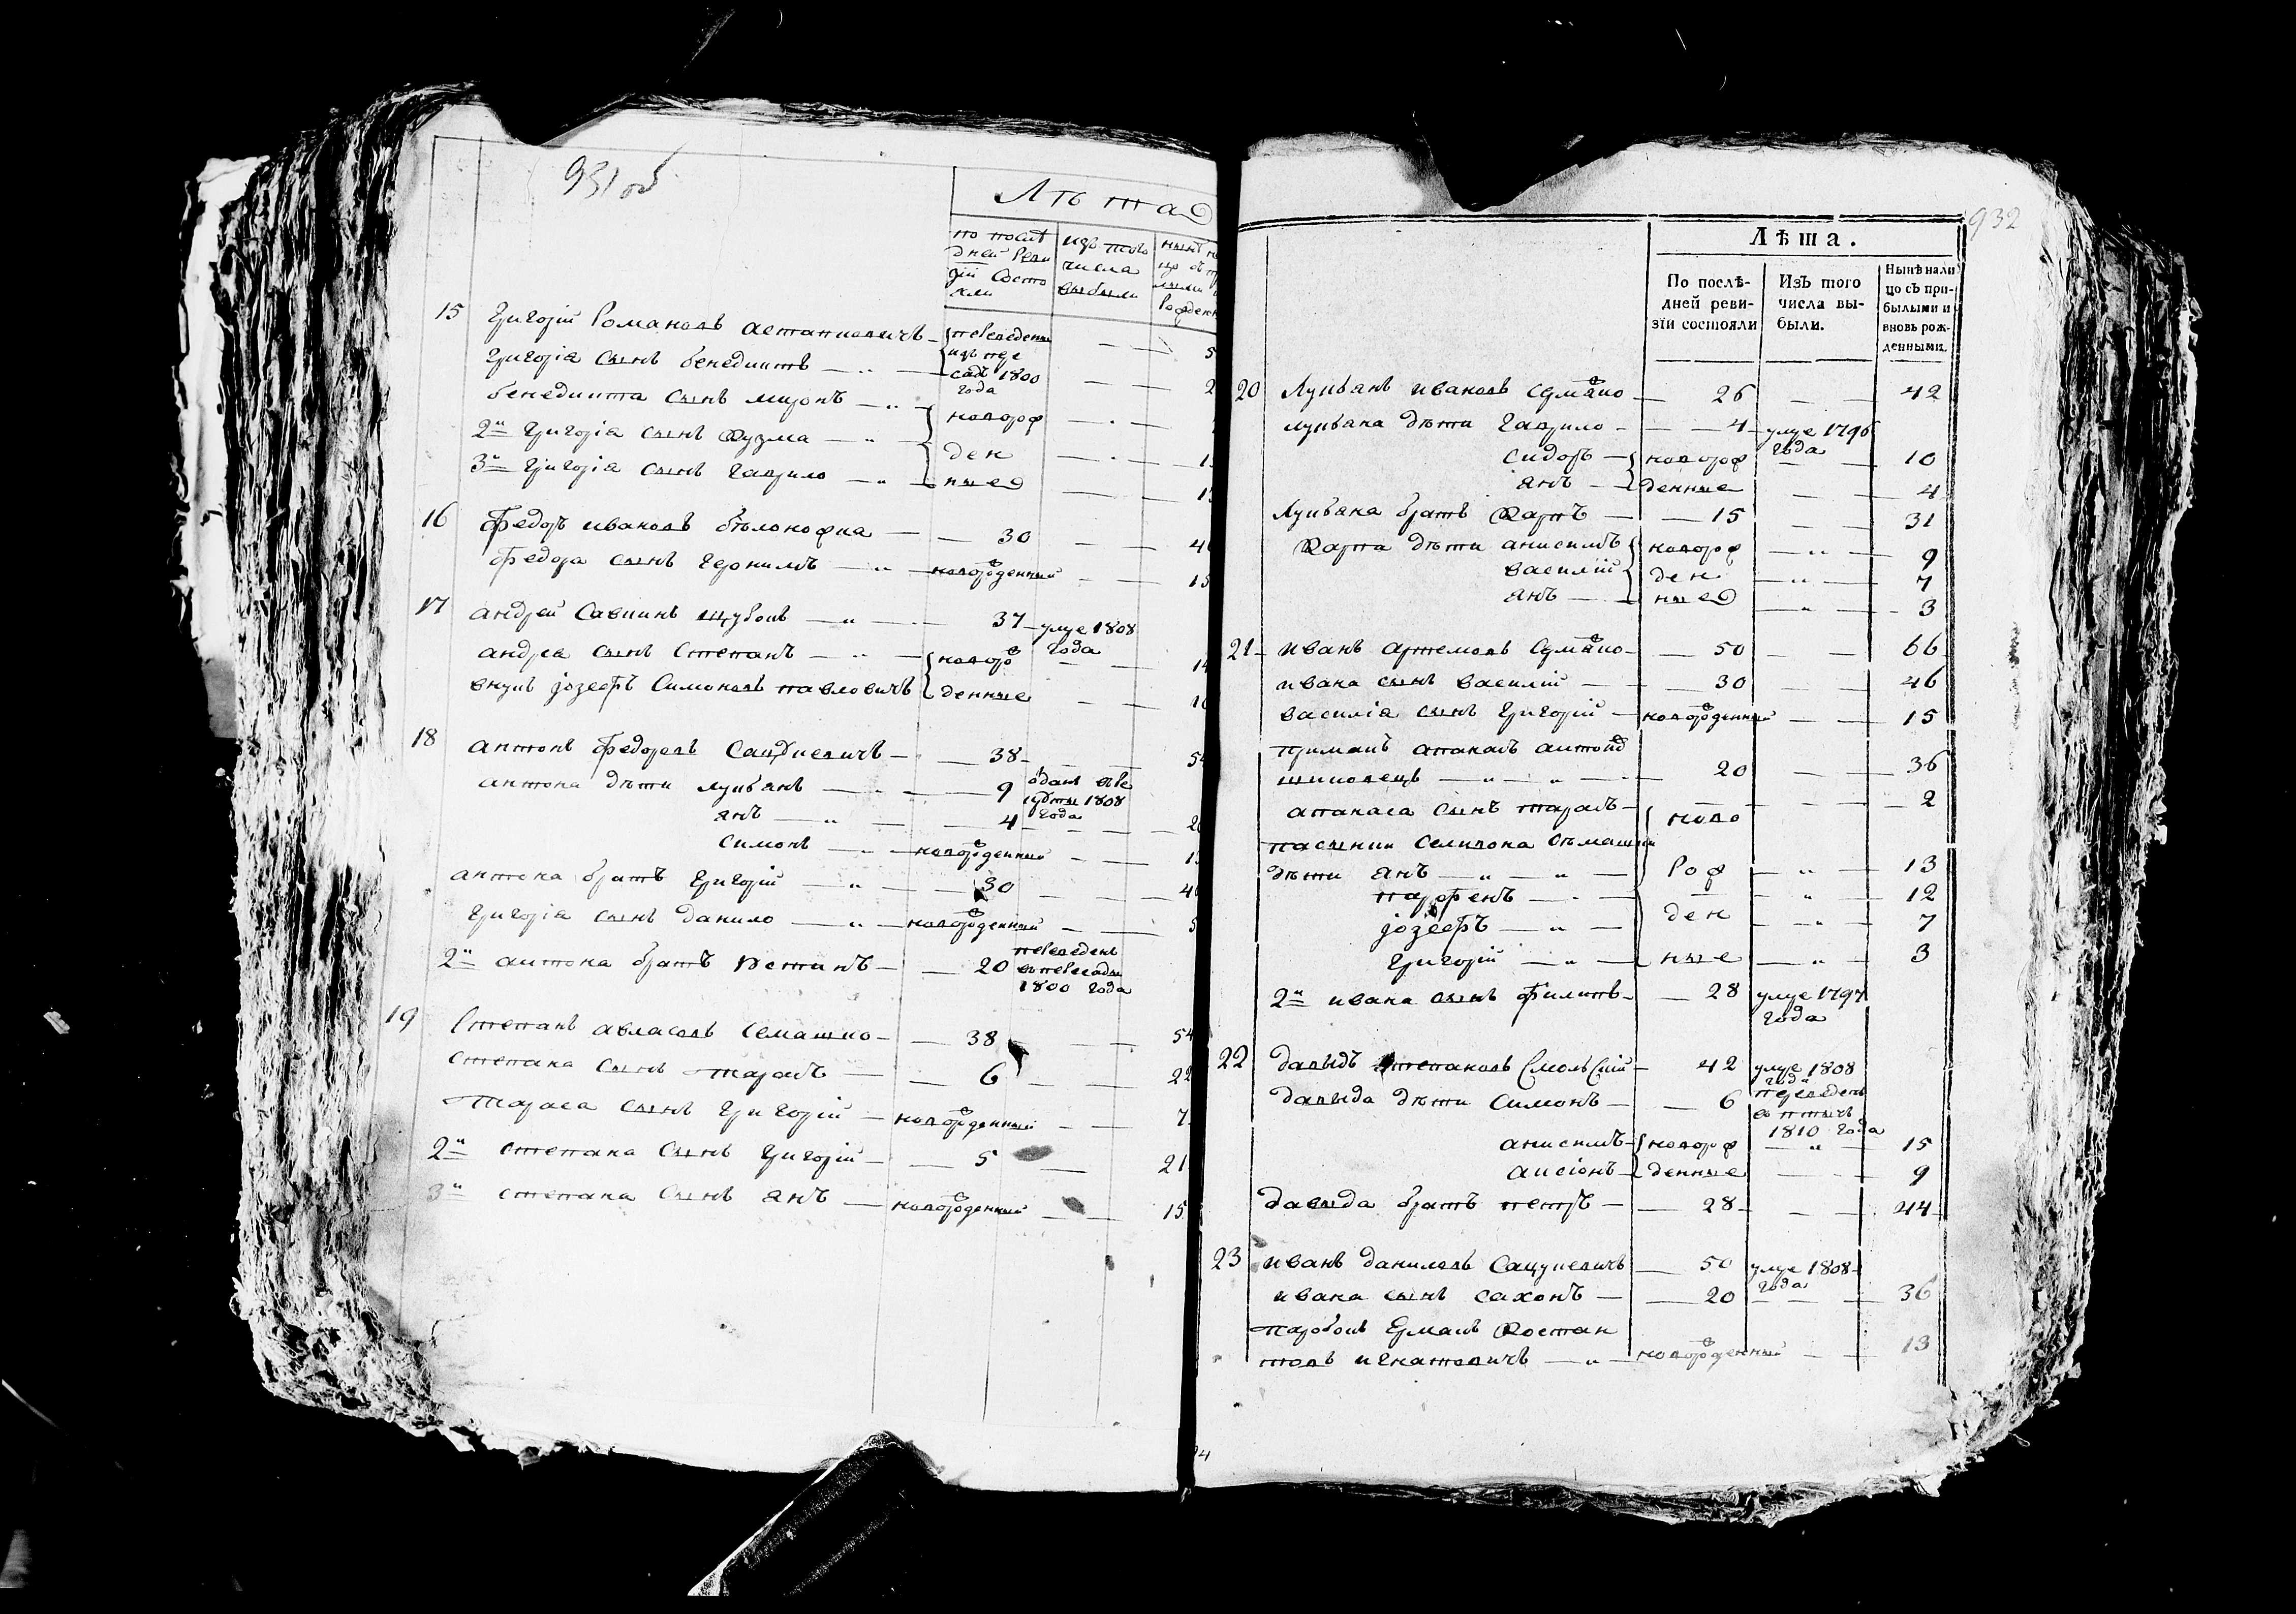 931 об
Лѣта
по послѣ
дней реви
зіи состо
яли
изъ того
числа
выбыли
15 Григорій Романовъ Астаповичъ переведены 5
Григорія сынъ Бенедиктъ изъ пере 2
садъ 1800
года
Бенедикта сынъ Миронъ новорож
2й Григорія сынъ Кузма ден 1
3й Григорія сынъ Гаврило ные 1
16 Федоръ Ивановъ Бѣлоножка 30 4
Федора сынъ Геронимъ новорожденный 15
17 Андрей Савкинъ 37 умре 1808
года
Андрея сынъ Степанъ новорож 1
внукъ Іозефъ Симоновъ Павловичъ денные 1
18 Антонъ Федоровъ Сацукевичъ 38 5
Антона дѣти Лукьянъ 9 оданъ въ ре
круты 1808
года
Янъ 4 2
Симонъ новорожденный 1
Антона братъ Григорій 30 4
Григорія сынъ Данило новорожденный 5
2й Антона братъ Устинъ 20 переведенъ
въ пересады
1800 года
19 Степанъ Авласовъ Семашко 38 54
Степана сынъ Тарасъ 6 22
Тараса сынъ Григорій новорожденный 7
2й Степана сынъ Григорій 5 21
3й Степана сынъ Янъ новорожденный 15
932
Лѣта.
По послѣ-
дней реви-
зіи состояли
Изъ того
числа вы-
были.
Нынѣ нали
цо съ при-
былыми и
вновь рож-
денными.
20 Лукьянъ Ивановъ Семашко 26 42
Лукьяна дѣти Гаврило 4 умре 1796
года
Сидоръ новорож 10
Янъ денные 4
Лукьяна братъ Карпъ 15 31
Карпа дѣти Анисимъ новорож 9
Василій ден 7
Янъ ные 3
21 Иванъ Артемовъ Семашко 50 66
Ивана сынъ Василій 30 46
Василія сынъ Григорій новорожденный 15
примакъ Апанасъ
20 36
Апанаса сынъ Тарасъ ново 2
пасынки Селивона Семашки
дѣти Янъ рож 13
Парфенъ 12
Іозефъ ден 7
Григорій ные 3
2й Ивана сынъ Филипъ 28 умре 1797
года
22 Давыдъ Степановъ Смольскій 42 умре 1808
года
Давыда дѣти Симонъ 6 переведенъ
въ Птичъ
1810 года
Анисимъ новорож 15
Аксіонъ денные 9
Давыда братъ Петръ 28 44
23 Иванъ Даниловъ Сацукевичъ 50 умре 1808
года
Ивана сынъ Сахонъ 20 36
паробокъ Ермакъ Костан
товъ Игнатовичъ новорожденный 13